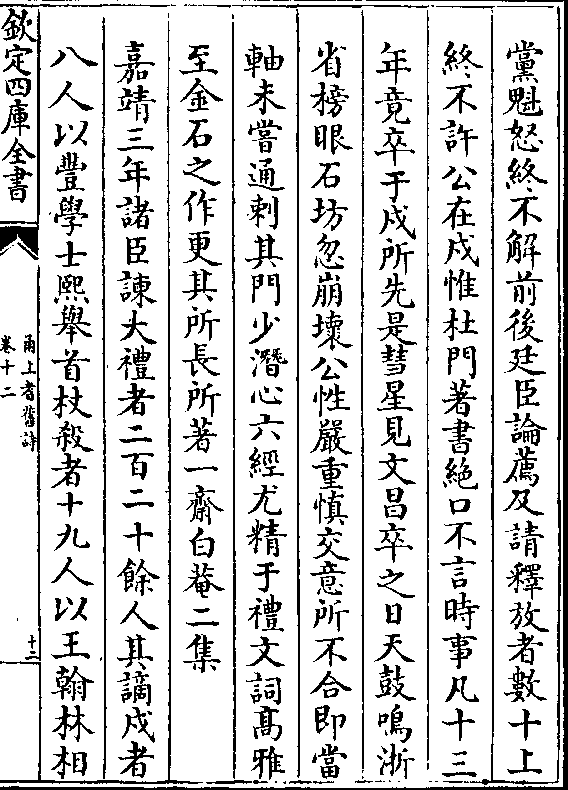 黨魁怒終不解前後廷臣論薦及請釋放者數十上
終不許公在戍惟杜門著書絕口不言時事凡十三
年竟卒于戍所先是彗星見文昌卒之日天鼓鳴浙
省榜眼石坊忽崩壞公性嚴重慎交意所不合即當
軸未嘗通刺其門少潛心六經尤精于禮文詞高雅
至金石之作更其所長所著一齋白菴二集
嘉靖三年諸臣諫大禮者二百二十餘人其謫戍者
八人以豐學士熙舉首杖殺者十九人以王翰林相
欽定四庫全書
甬上耆舊詩
卷十二
十三